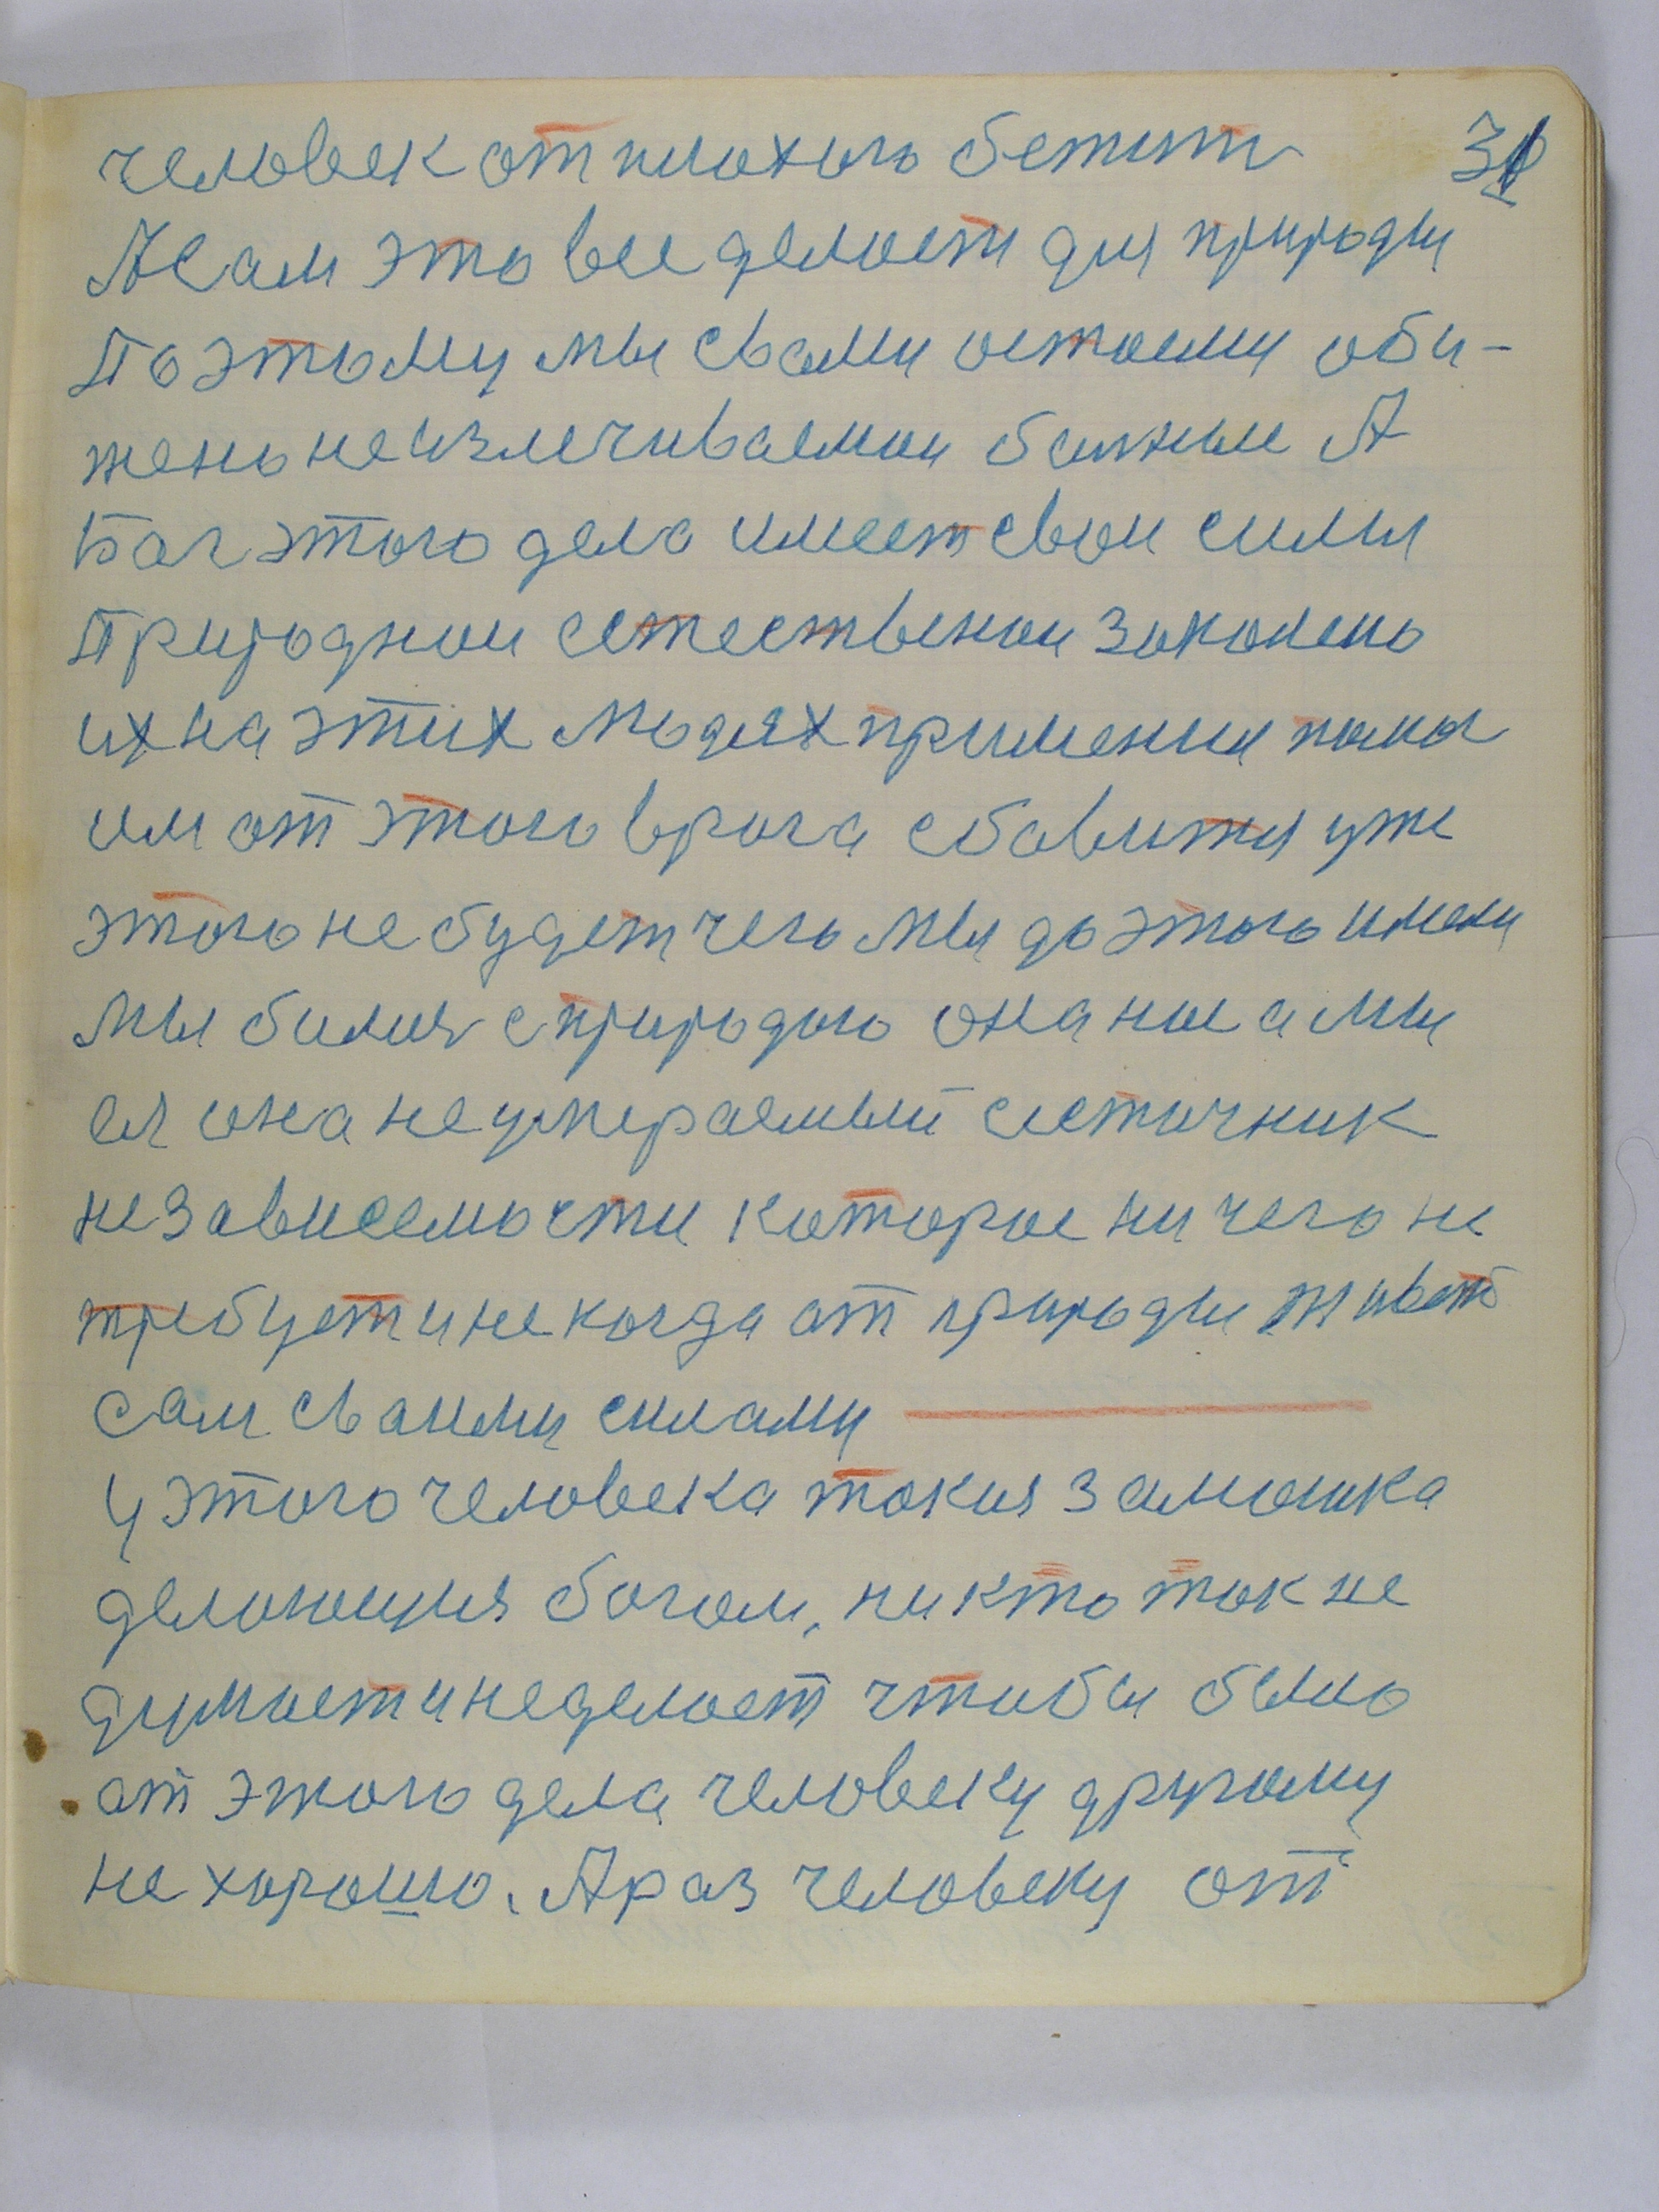 человек от плохого бежит 31
А сам это все делает для природы
Поэтому мы свами остаемы оби-
жено неизлечиваемои болные А
Бог этого дела имеет свои силы
Природнои естественои законено
их на этих людях применил
им от этого врага избавится уже
этого не будет чего мы до этого имели
мы билис с природою она нас а мы
ея она не умераемый источник
независемости которое ни чего не
требует и не когда от природы живет
сам сваими силами
у этого человека такия замашка
делающия богом, ни кто так не
думает и не делает чтобы было
от этого дела человеку другому
не хорошо. А раз человеку от